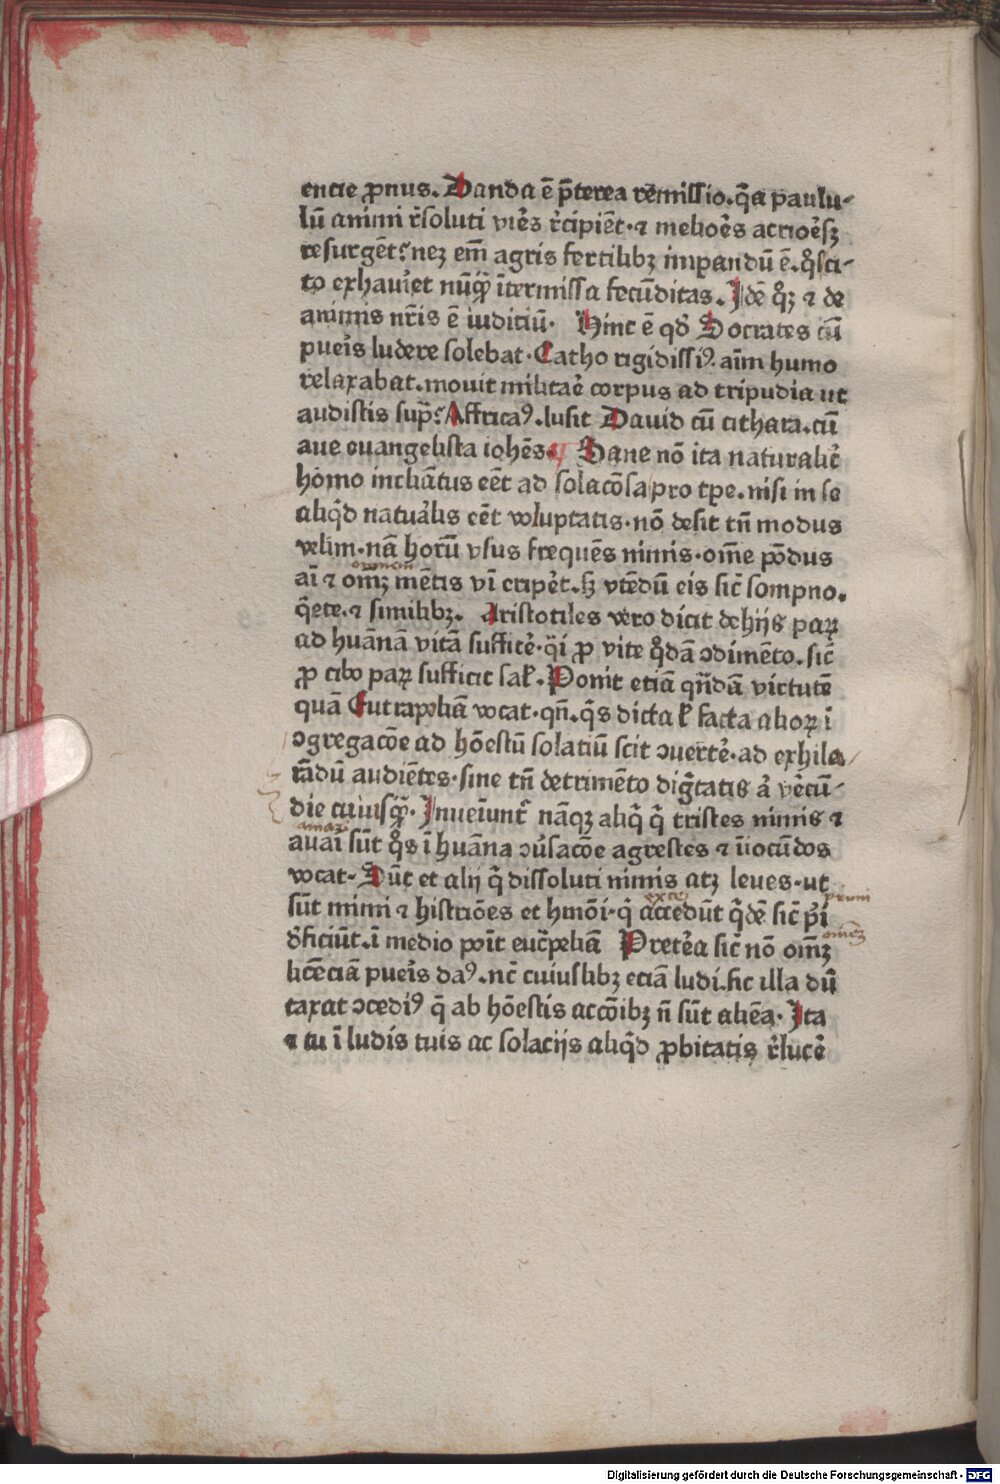 encie ꝓnus. Danda ē p̄terea remissio. q̄a paulu-
lū animi r̄soluti vires r̄cipiēt. ⁊ meliores acrioresqꝫ
resurgēt: neqꝫ em̄ agris fertilibꝫ imꝑandū ē. q̊sci-
to exhauriet nūq̄ꝫ ītermissa fecūditas. Idē q̊qꝫ ⁊ de
animis nr̄is ē iuditiū. Hinc ē qđ Socrates cū
pueris ludere solebat. Catho rigidissiꝰ aīm humo
relaxabat. mouit militarē corpus ad tripudia ut
audistis supͣ: Affricaꝰ. lusit Dauid cū cithara. cū
aue ewangelista iohēs. Sane nō ita naturalit̄
homo inclinātus eēt ad solacōsa pro tꝑe. nisi in se
aliq̄d naturalis eēt voluptatis. nō desit tn̄ modus
velim. nā horū vsus frequēs nimis. om̄e pōdus
onmem
aī ⁊ omꝫ mētis vī eripet. sꝫ vtēdū eis sic̄ sompno.
q̄ete. ⁊ similibꝫ. Aristotiles vero dicit de hijs parꝫ
ad huānā vitā sufficē. q̄i ꝓ vite q̊dā ꝯdimēto. sic̄
ꝓ cibo parꝫ sufficit sal. Ponit etiā qn̄dā virtutē
quā Eutrapeliā vocat. qn̄. q̄s dicta ł facta alioꝝ ī
ꝯgregacōe ad hōestū solatiū scit ꝯuertē. ad exhila
rādū audiētes. sine tn̄ detrimēto dignitatis a̛ verecū-
die cuiusq̄ꝫ. Inueniunt̛ nāqꝫ aliq̄ q̄ tristes nimis ⁊
amari
auari sūt q̊s ī huāna ꝯuersacōe agrestes ⁊ īiocūdos
vocat. Sūt et alij q̄ dissoluti nimis atqꝫ leues. ut
sūt mimi ⁊ histriōes et hmōi. q̄ accedūt q̄dē sic̄ pri
primi
dificiūt. ī medio ponit eutrapeliā Preterea sic̄ nō omꝫ
omnē
licēciā pueris daꝰ. nc̄ cuiuslibꝫ etiā ludi. sic illa dū
taxat ꝯcediꝰ q̄ ab hōestis accōibꝫ n̄ sūt aliēa. Ita
⁊ tu ī ludis tuis ac solacijs aliq̄d ꝓbitatis r̄lucē
Digitalisierung gefördert durch die Deutsche Forschungsgemeinschaft - DFG